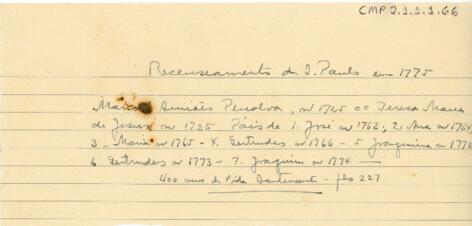 CMP 2.1.1.1.66
Recenseamento de S. Paulo em 1775
Simões Penalva, n 1725 cc Teresa Maria
de Jesus n 1735 Páis de 1. José n 1762; 2 Ana n 1764
3. Maria n 1765 - 4. Gertrudes n 1766 - 5 Joaquina n 1772
6. Gertrudes n 1773 - 7. Joaquim n 1774 —
400 anos de Vida - fls 227